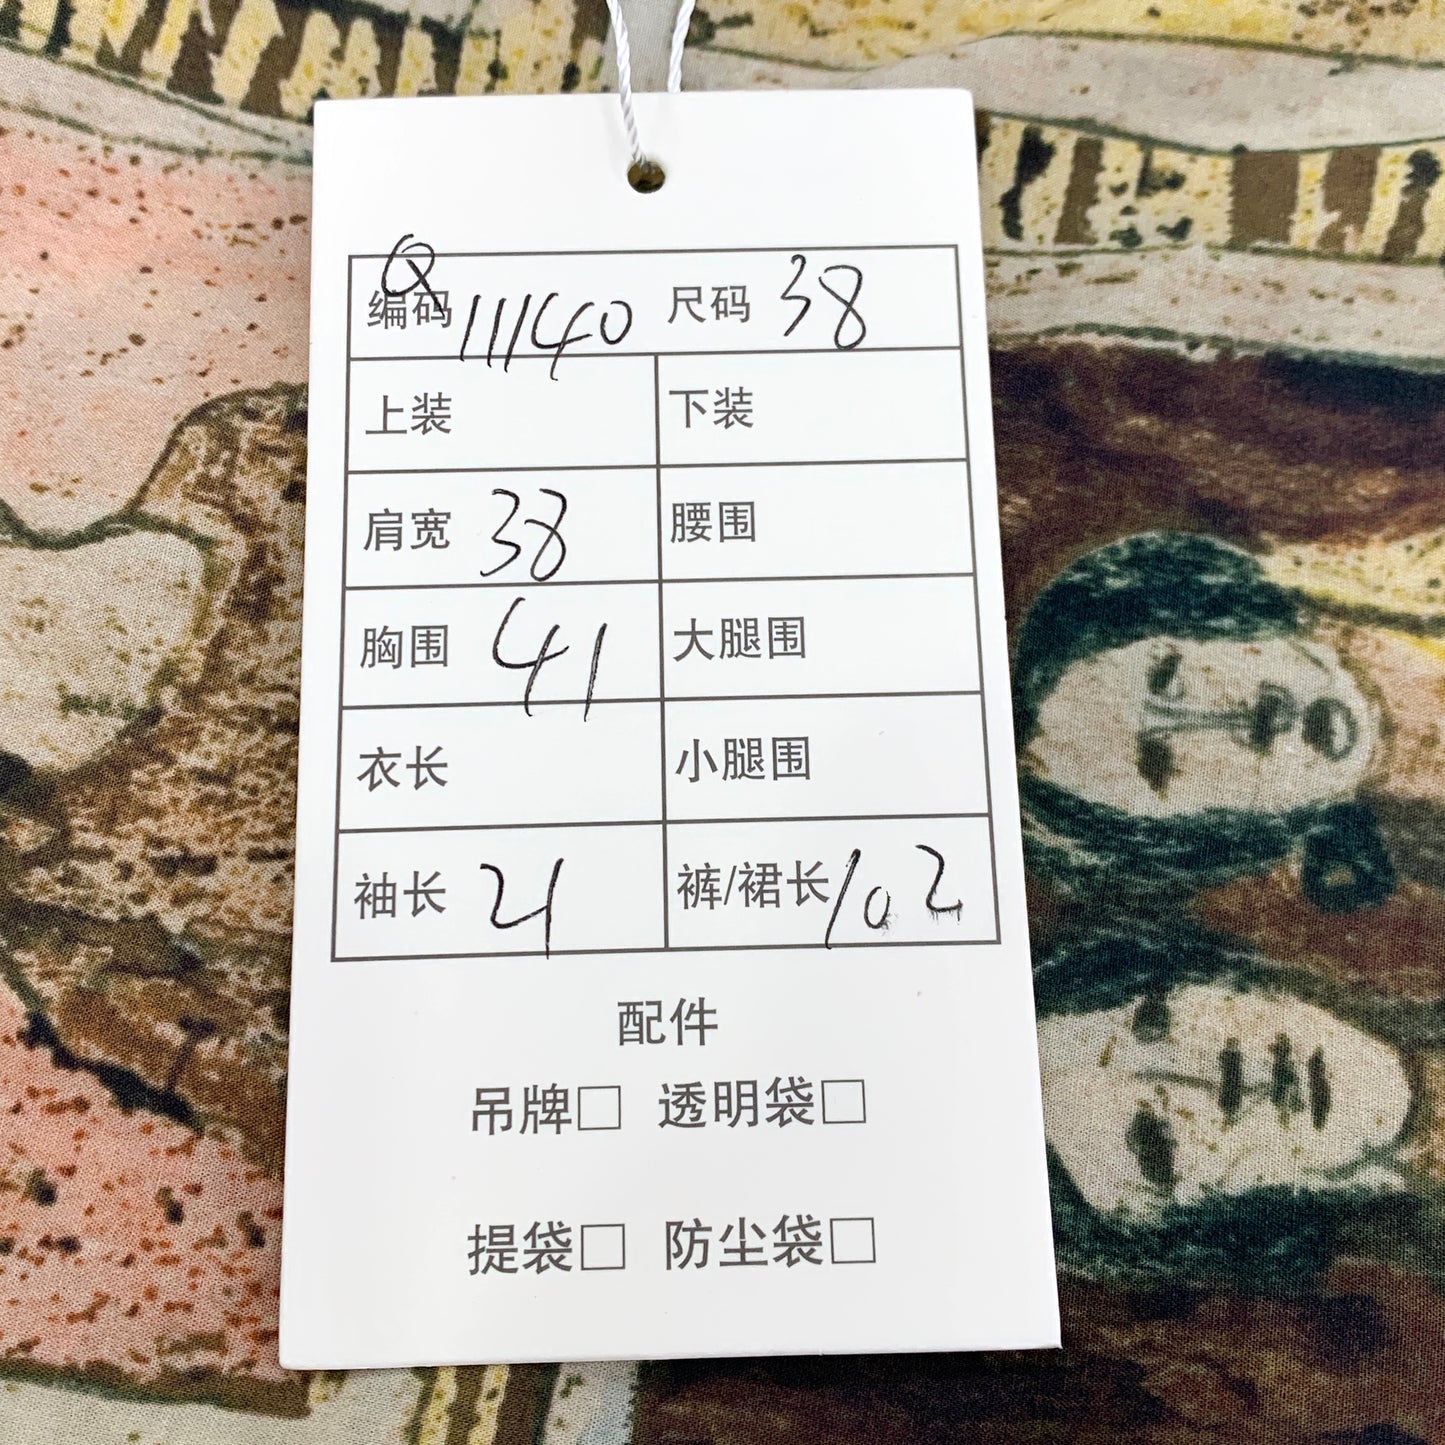 编码 Q11140 尺码 38
上装 下装
肩宽 38 腰围
胸围 41 大腿围
衣长 小腿围
袖长 21 裤/裙长 102
配件
吊牌□ 透明袋□
提袋□ 防尘袋□